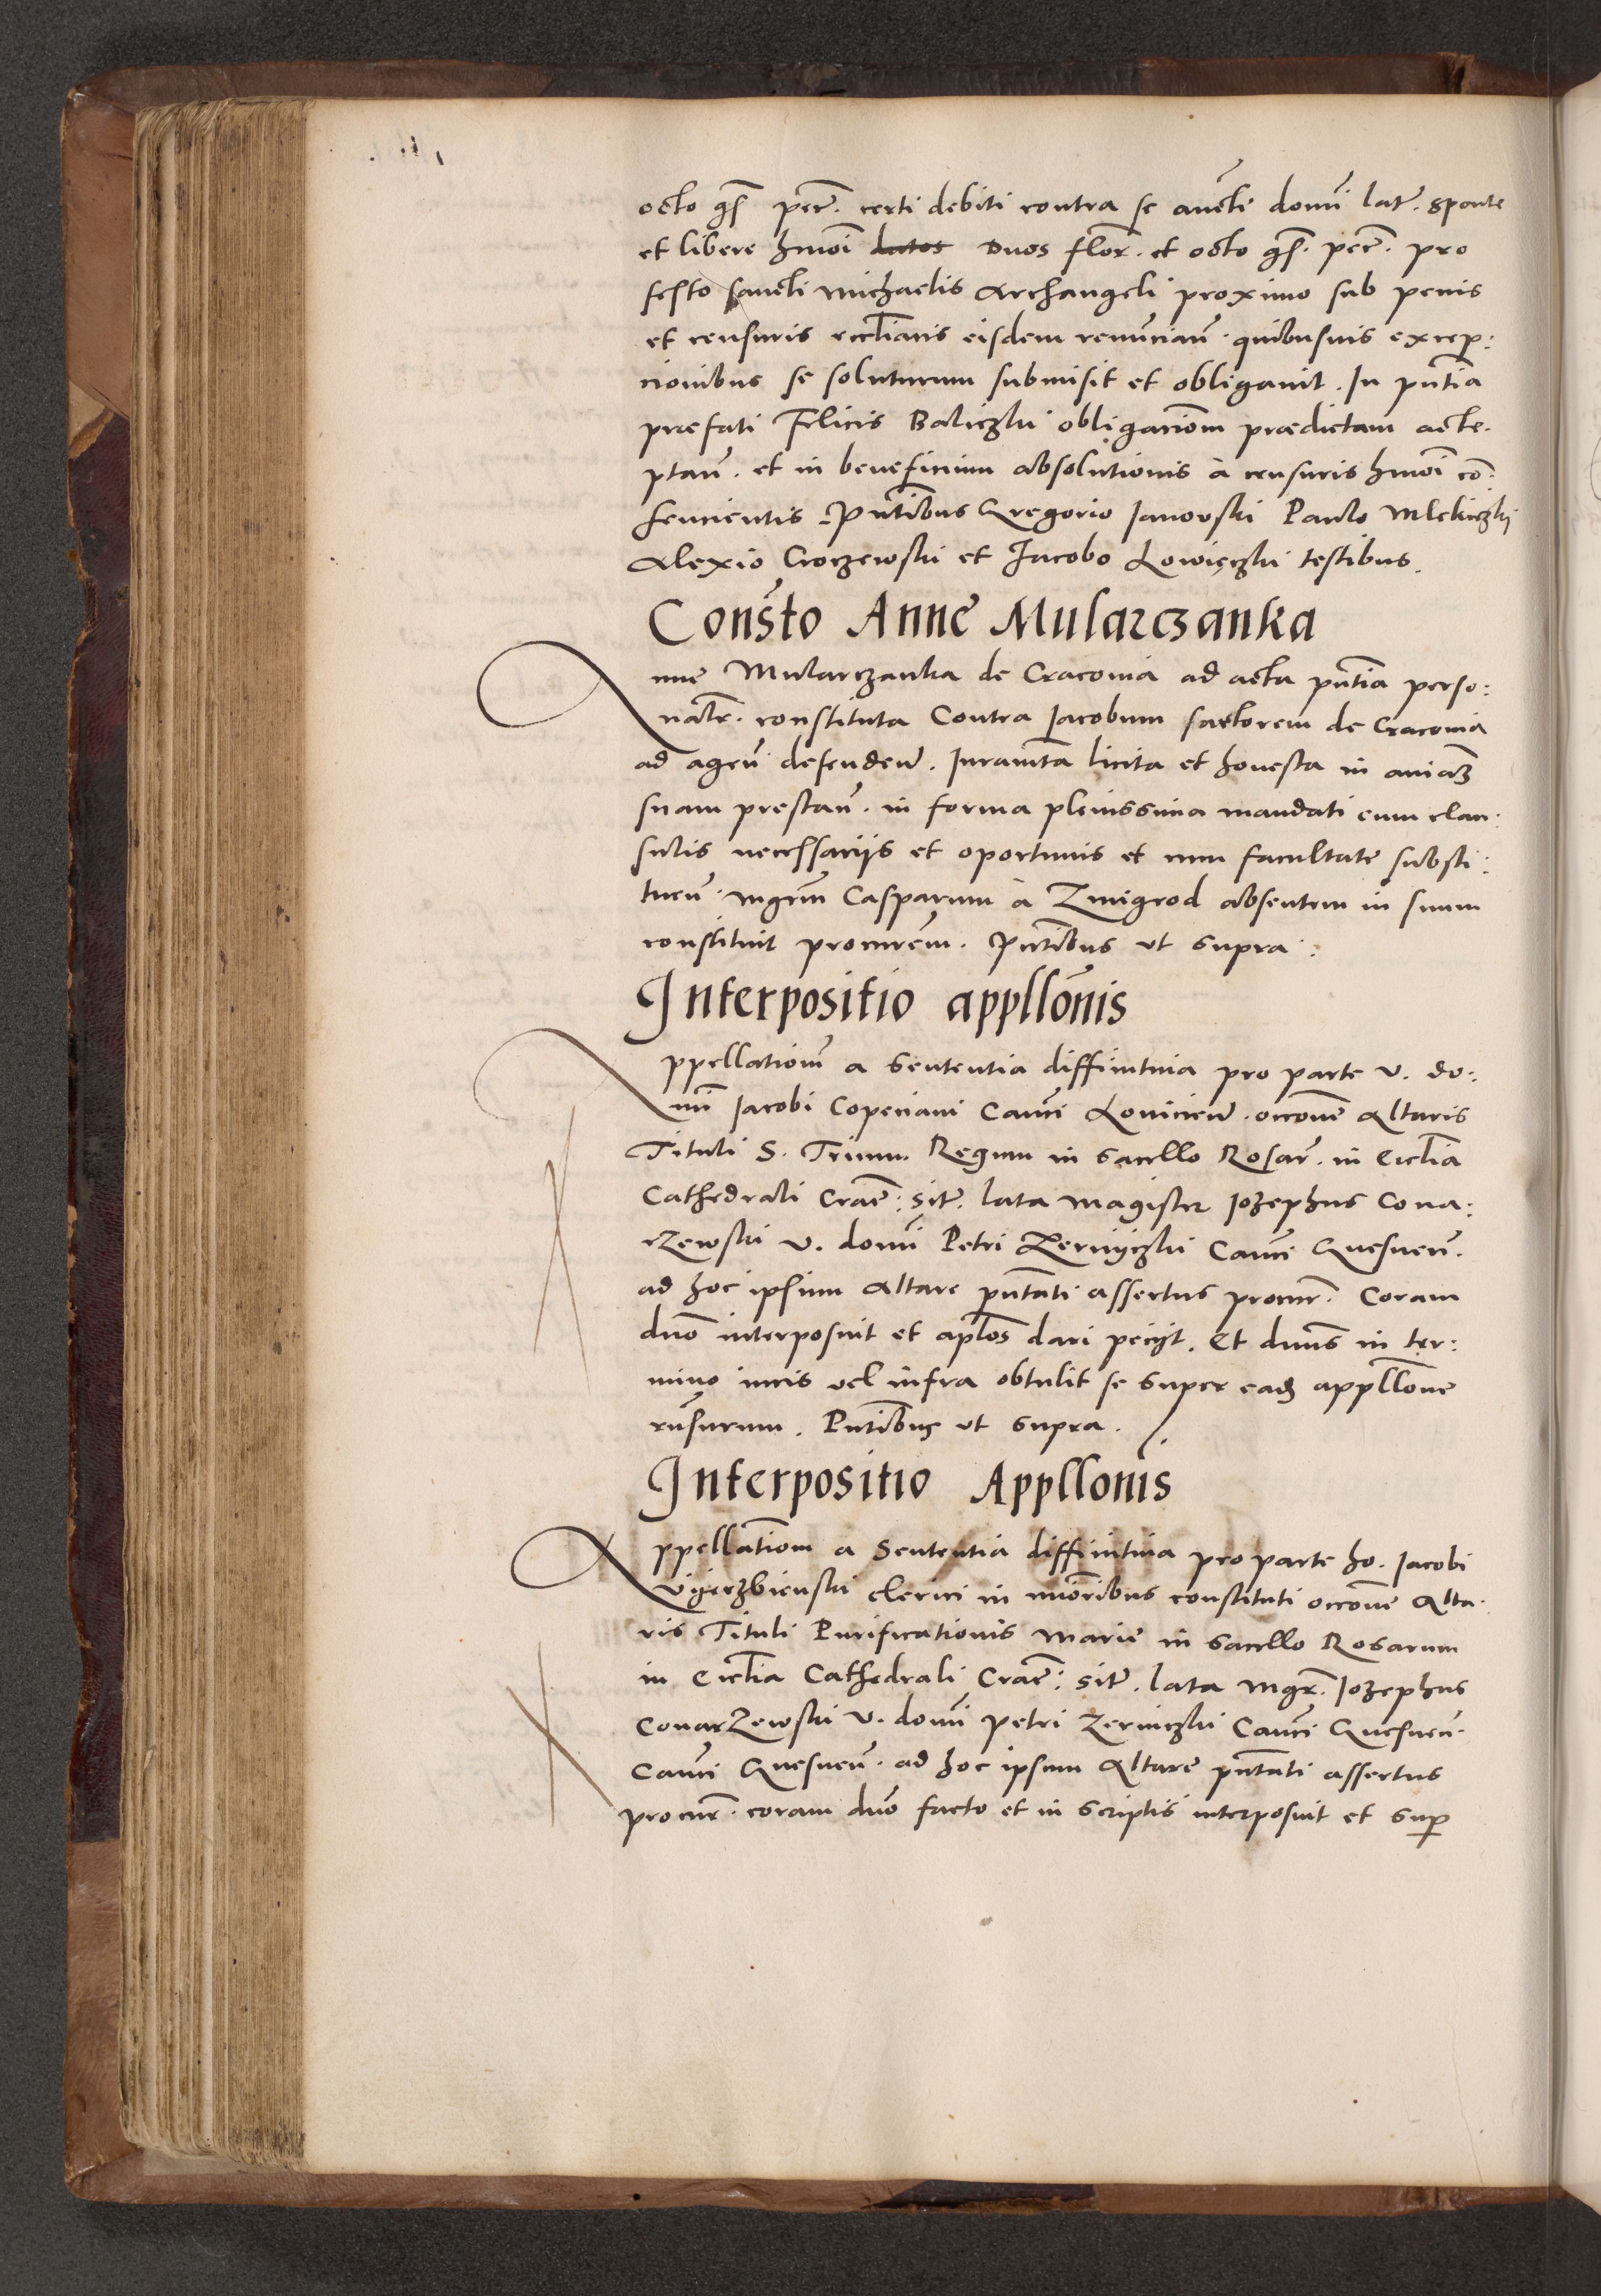 octo gs̄ pec̄. certi debiti contra se aucte domī lat̄. sponte
et libere hmōi latos Duos flor̄. et octo gs̄. pec̄. pro
festo sancti Michaelis Archangeli proximo sub penis
et censuris eccl̄iacis eisdem renunciañ. quibusuis excep:
cionibus se soluturum submisit et obligauit. In pn̄tia
præfati Felicis Baliczki obligaciōm prædictam acte.
ptañ. et in beneficium absolutionis à censuris hmōi cō:
sencientis. Pn̄tibus Gregorio Janovski Paulo Mlekiczki
Alexio Croczewski et Jacobo Lowięczki testibus.
Consīto Anne Mularczanka
Anne Mularczanka de Cracouia ad acta pn̄tia perso:
nalr̄. constituta Contra Jacobum sartorem de Cracouia
ad agen̄ defenden̄. Juramn̄ta licita et honesta in aniāꝫ
suam prestan̄. in forma plenissima mandati cum clau:
sulis necessarijs et oportunis et cum facultate substi:
tuen̄. mgr̄m Casparum à Zmigrod absentem in suum
constituit procur̄em. Pn̄tibus ut supra:
Interpositio appllōnis
Appellationē a sententia diffinitiua pro parte v. do:
mī Jacobi Copeciani Can̄ci Louicien̄. occōne Altaris
Tituli S. Trium Regum in sacello Rosar̄. in Eccl̄ia
Cathedrali Crac̄: sit̄. lata Magister Jozephus Cona:
rzewski v. domī Petri Zernyczki Can̄ci Gnesnen̄.
ad hoc ipsum Altare pn̄tati assertus procur̄. Coram
dn̄o interposuit et aplōs dari pecijt. Et dn̄us in ter:
mino iuris vel infra obtulit se super eadꝫ appllōne
rn̄surum. Pn̄tibus ut supra.
Interpositio Appllōnis
Appellatiōm a Sententia diffinitiua pro parte ho. Jacobi
Vijerzbienski clerici in miōribus constituti occōne Alta.
ris Tituli Purificationis Marie in sacello Rosarum
in Eccl̄ia Cathedrali Crac̄: sit̄. lata Mgr̄. Jozephus
Conarzewski v. domī Petri Zerniczki Can̄ci Gnesnen̄.
Can̄ci Gnesnen̄. ad hoc ipsum Altare pn̄tati assertus
procur̄. coram dn̄o facto et in scriptis interposuit et sup̄